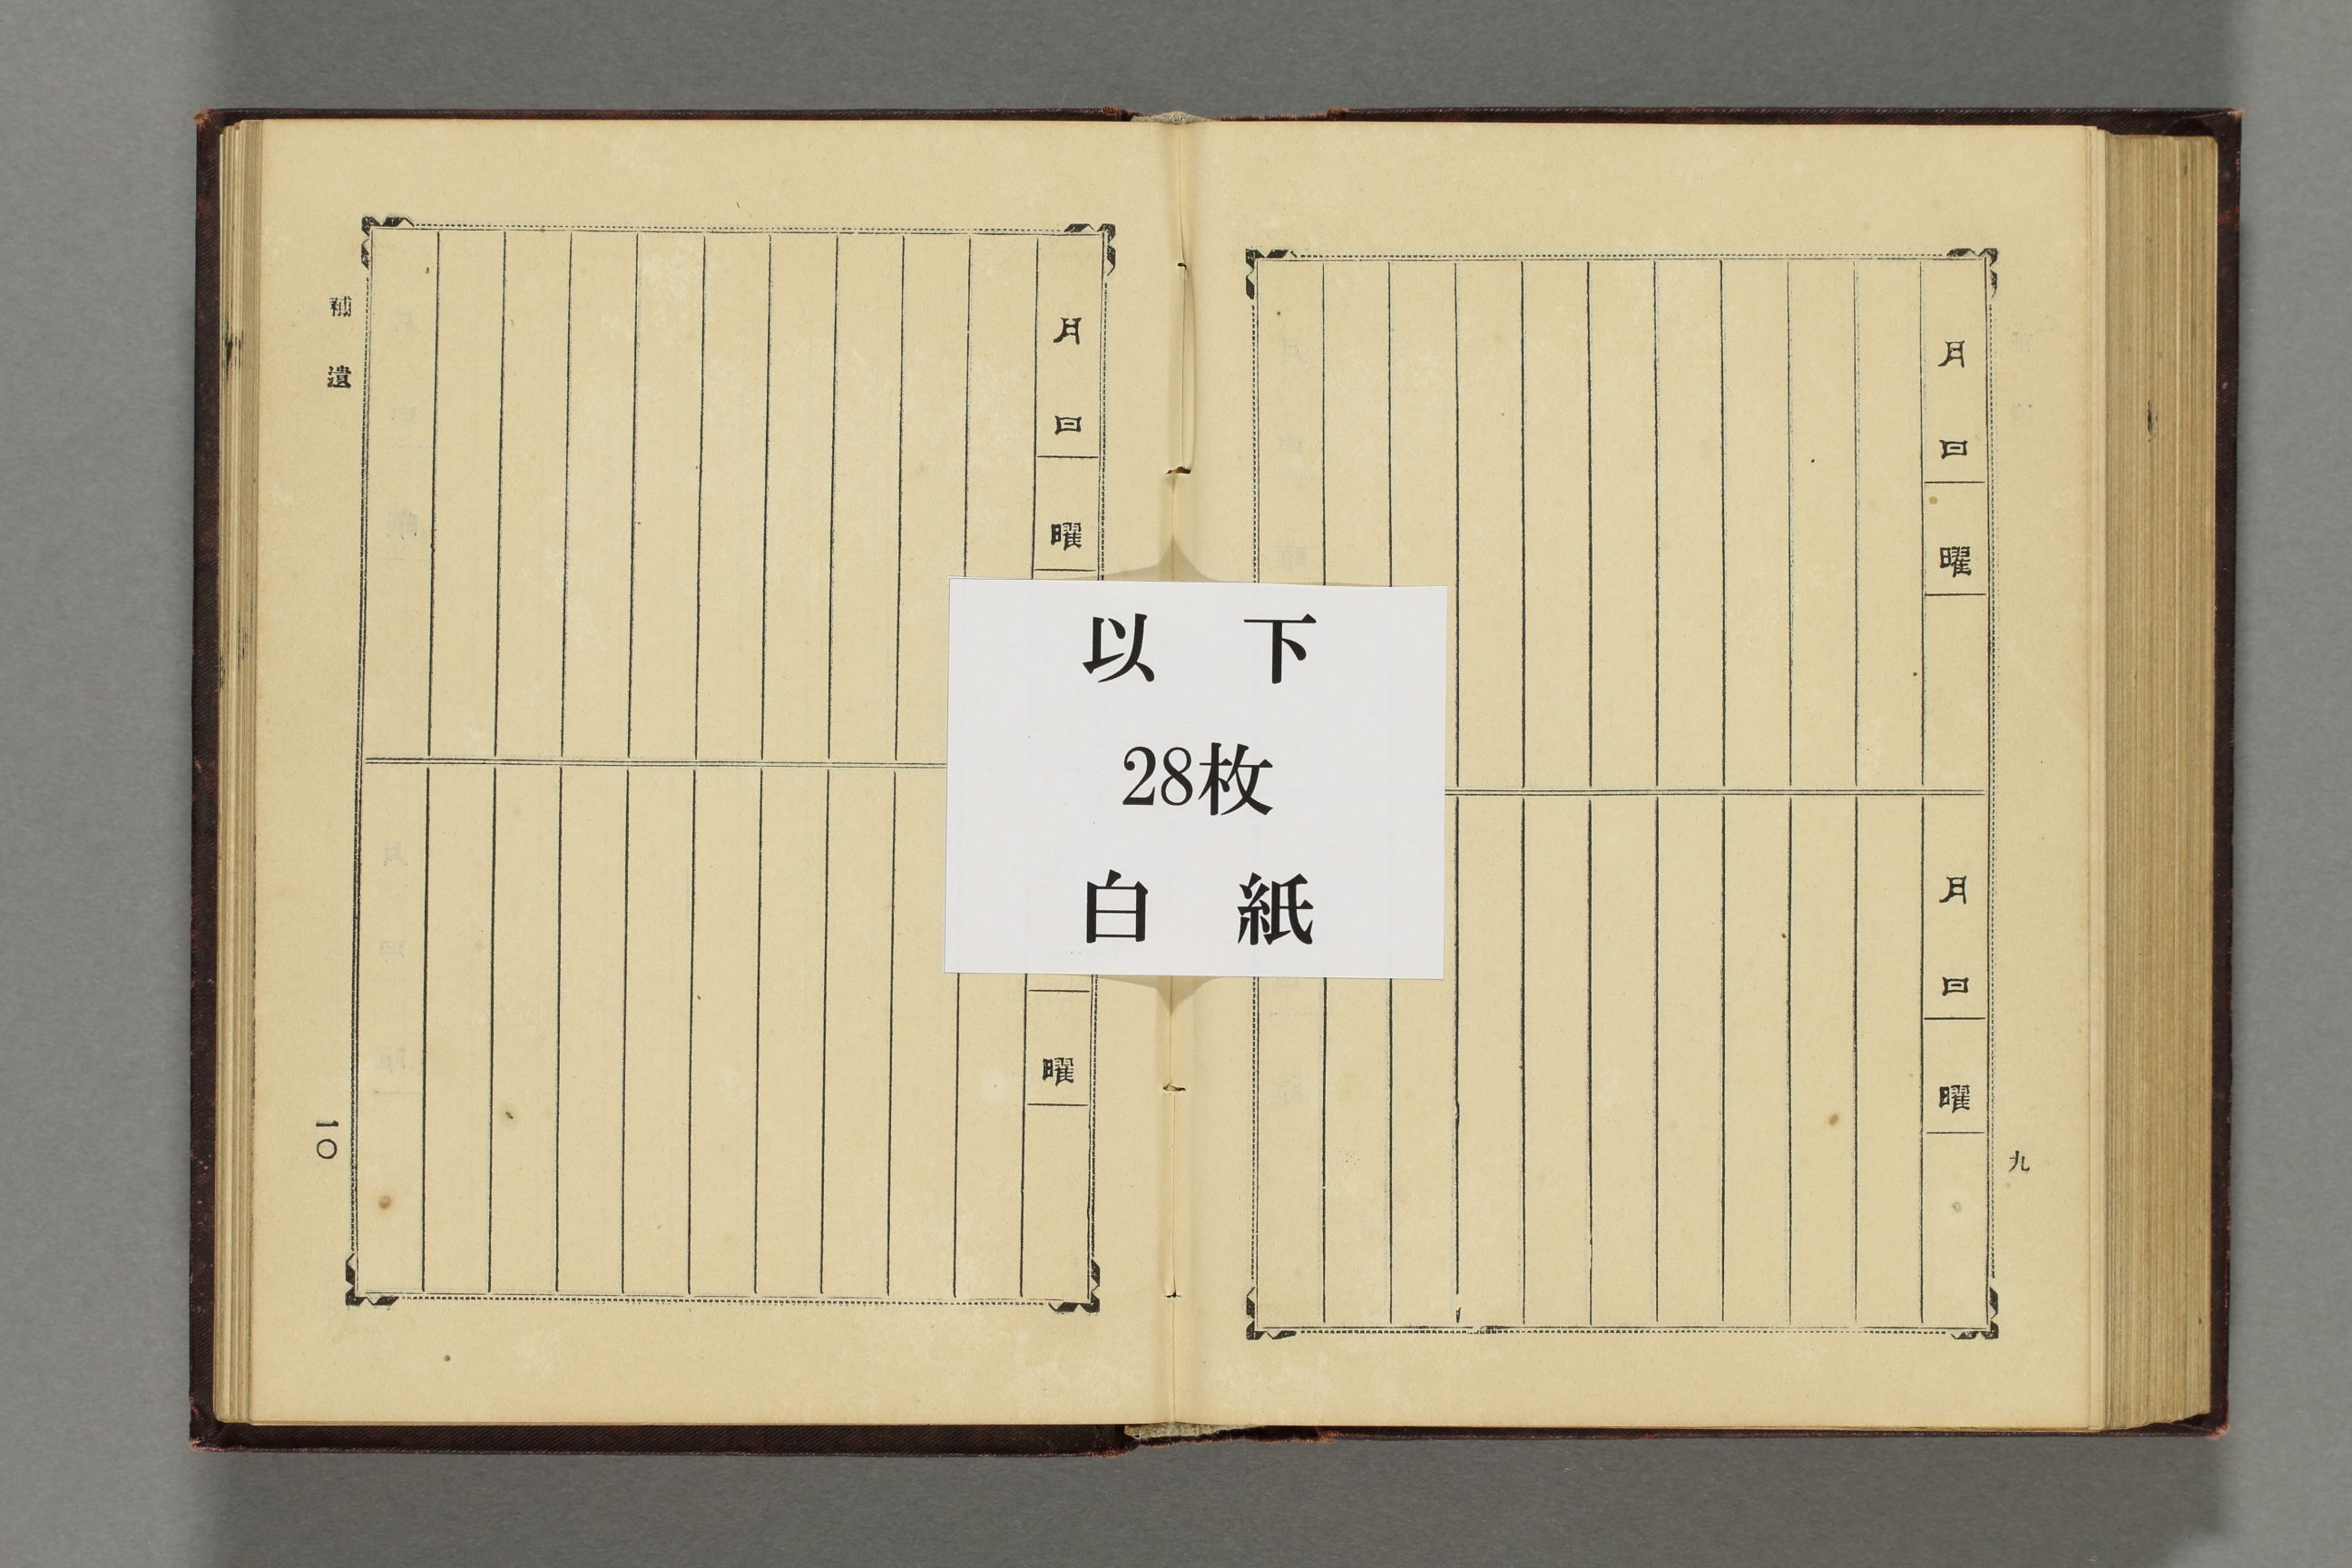 月 日 曜
月 日 曜
九
月 日 曜
曜
補遺
一〇
以 下
28枚
白 紙